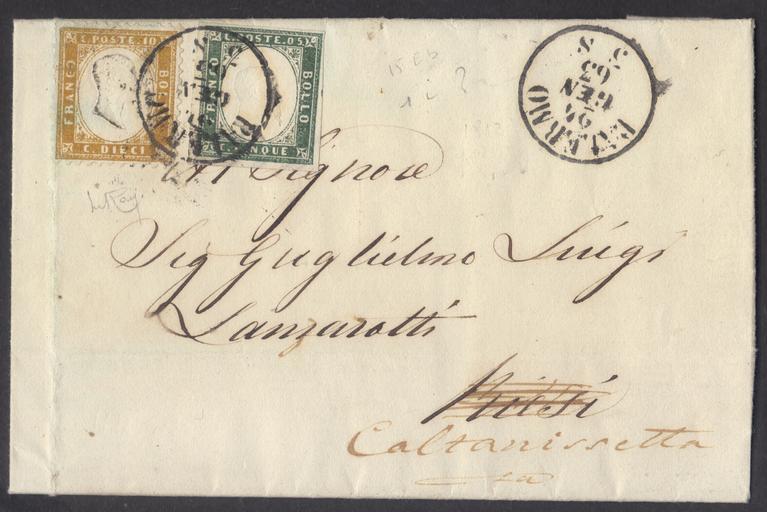 C. POSTE. 10
FRANCO
BOLLO
C. DIECI
C. POSTE. 05
BOLLO
C. CINQUE
PALERMO
26
GEN
63
5 S
15 C
Al Signore
Sig Guglielmo Luigi
Lanzarotti
Caltanissetta